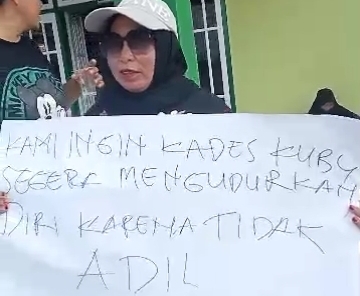 KAMI INGIN KADES KUBU
SEGERA MENGUDURKAN
DIRI KARENA TIDAK
ADIL